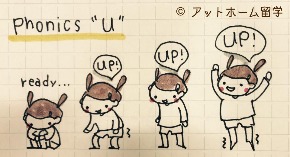 © アットホーム留学
Phonics "U"
ready...
UP!
UP!
UP!